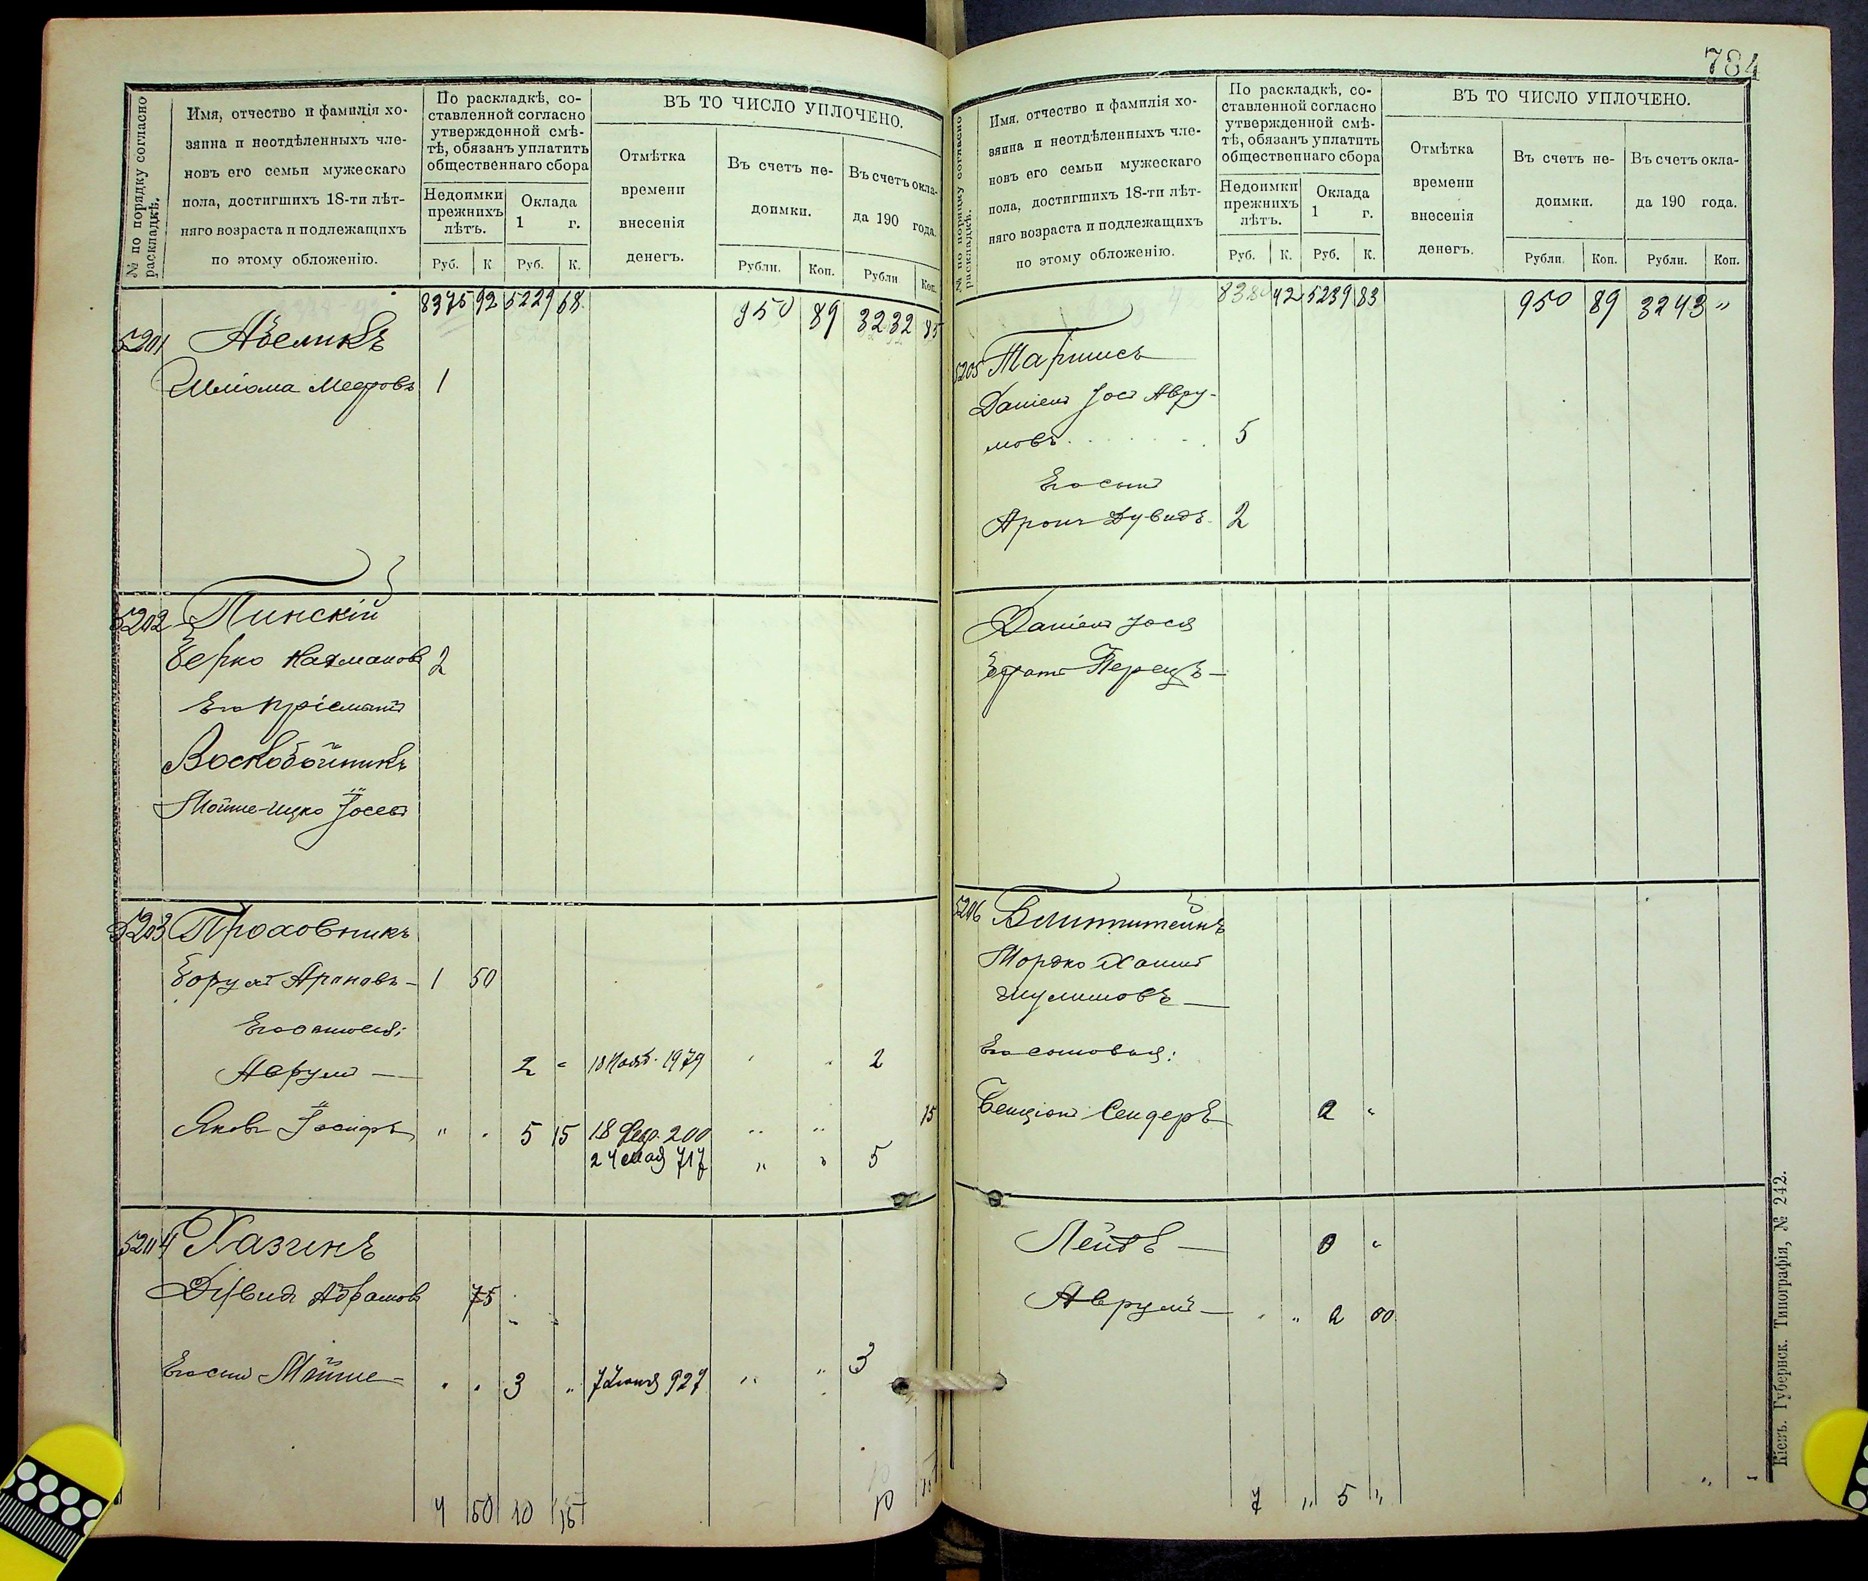 784
№ по порядку согласно раскладкѣ.
Имя, отчество и фамилія хо-
зяина и неотдѣленныхъ чле-
новъ его семьи мужескаго
пола, достигшихъ 18-ти лѣт-
няго возраста и подлежащихъ
по этому обложенію.
По раскладкѣ, со-
ставленной согласно
утвержденной смѣ-
тѣ, обязанъ уплатить
общественнаго сбора
Недоимки
прежнихъ
лѣтъ.
Оклада
1 г.
Руб. К Руб. К.
ВЪ ТО ЧИСЛО УПЛОЧЕНО.
Отмѣтка
времени
внесенія
денегъ.
Въ счетъ не-
доимки.
Въ счетъ окла-
да 190 года.
Рубли. Коп. Рубли Коп.
8375 92 5229 68 950 89 3232 85
5201
Шліома 1
5202 Пинскій
Берко Нахмановъ 2
Его пріемышъ
Воскобойникъ
Мойше-Ицко Іосевъ
5203 Проховникъ
Борухъ Ароновъ - 1 50
Аврумъ — 2 " 18 Нояб. 1979 2
Яковъ Іосифъ " " 5 15 18 Фев. 200 " " 15
24 мая 717 " " 5
5204 Хазинъ
Дувидъ Абрамовъ 75
Его сынъ Мойше - " " 3 " 7 927 " " 3
4 50 10 15 10 15
№ по порядку согласно раскладкѣ.
Имя, отчество и фамилія хо-
зяина и неотдѣленныхъ чле-
новъ его семьи мужескаго
пола, достигшихъ 18-ти лѣт-
няго возраста и подлежащихъ
по этому обложенію.
По раскладкѣ, со-
ставленной согласно
утвержденной смѣ-
тѣ, обязанъ уплатить
общественнаго сбора
Недоимки
прежнихъ
лѣтъ.
Оклада
1 г.
Руб. К. Руб. К.
ВЪ ТО ЧИСЛО УПЛОЧЕНО.
Отмѣтка
времени
внесенія
денегъ.
Въ счетъ не-
доимки.
Въ счетъ окла-
да 190 года.
Рубли. Коп. Рубли. Коп.
42 5239 83 950 89 3243 "
5205
Даніель Іось Авру-
мовъ 5
Его сынъ
Аронъ Дувидъ 2
Даніель Іося
братъ Перецъ —
5206
Мордко Хаимъ
Шулимовъ —
Его сыновья:
Бенціонъ Сендеръ 2 "
Лейбъ — "
Аврумъ — " " 2 00
7 " 5 "
Кіевъ. Губернск. Типографія, № 242.